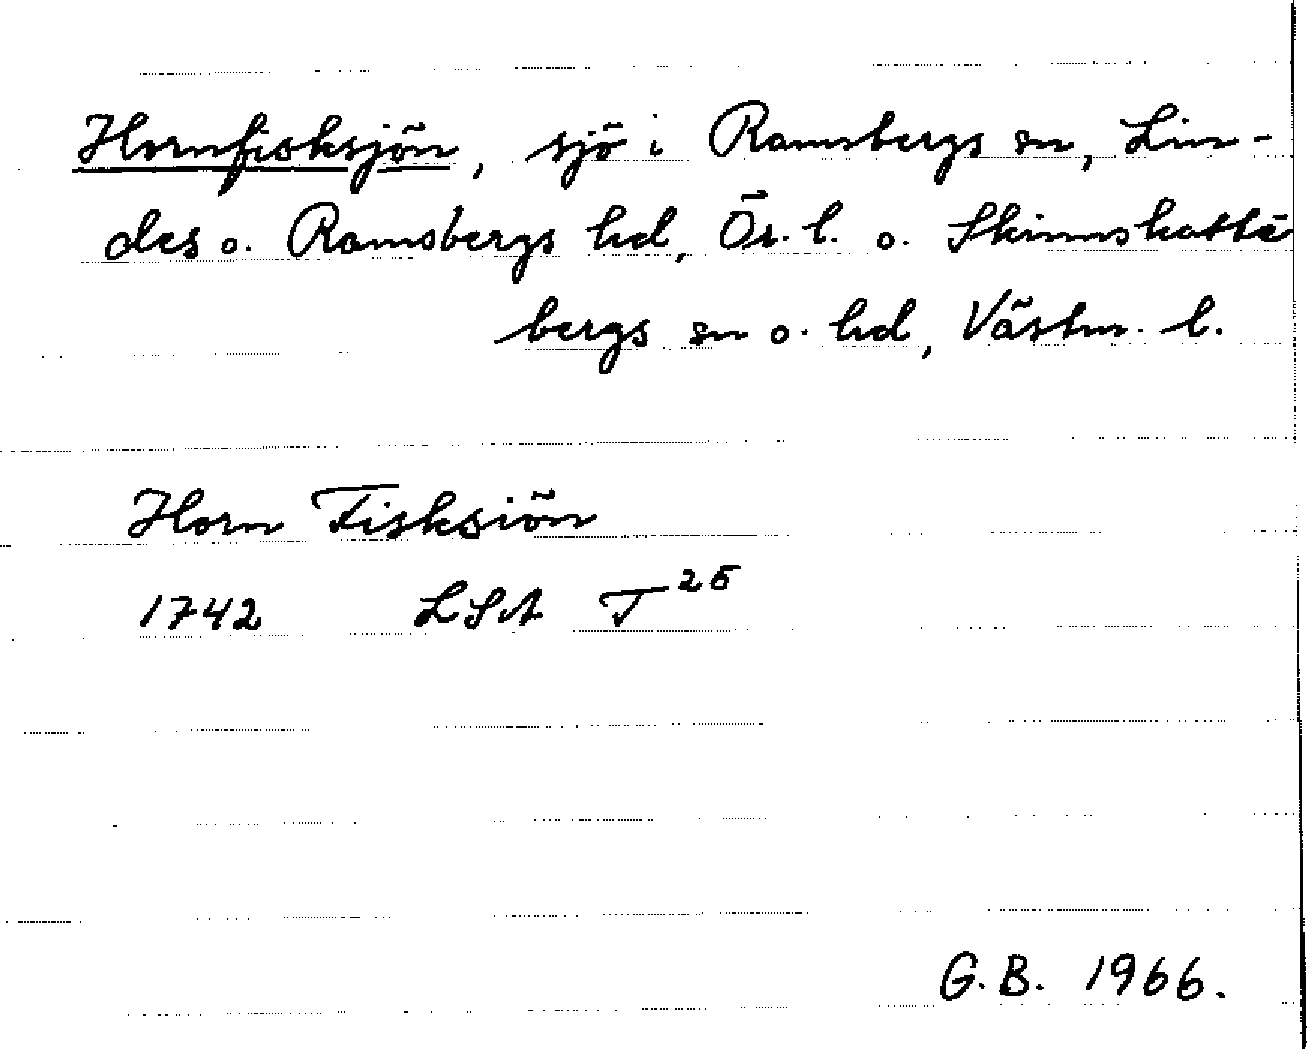 Hornfisksjön, sjö i Ramsbergs sn, Lin-
des o. Ramsbergs hd, Ör. l. o. Skinnskatte
bergs sn o. hd, Västm. l.
Horn Fisksiön
1742 LSA T 26
G.B. 1966.